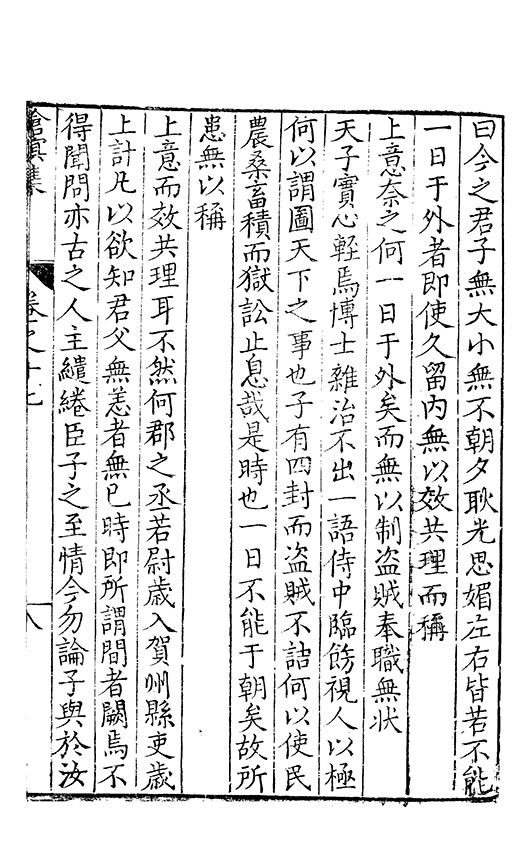 曰今之君子無大小無不朝夕耿光思媚左右皆若不能
一日于外者即使久留内無以效共理而稱
上意奈之何一日于外矣而無以制盗賊奉職無狀
天子實心輕焉博士雜治不出一語侍中臨飭視人以極
何以謂圖天下之事也子有四封而盗賊不詰何以使民
農桑畜積而獄訟止息哉是時也一日不能于朝矣故所
患無以稱
上意而效共理耳不然何郡之丞若尉歲入賀州縣吏歲
上計凡以欲知君父無恙者無已時即所謂間者闕焉不
得聞問亦古之人主繾綣臣子之至情今勿論子與於汝
滄溟集
卷之十七
八